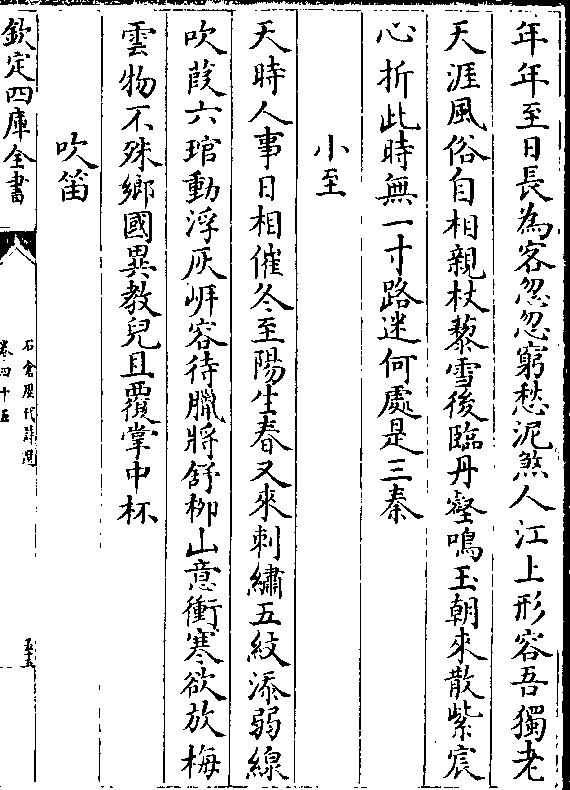 年年至日長為客忽忽窮愁泥煞人江上形容吾獨老
天涯風俗自相親杖藜雪後臨丹壑鳴玉朝來散紫宸
心折此時無一寸路迷何處是三秦
小至
天時人事日相催冬至陽生春又來刺繡五紋添弱線
吹葭六琯動浮灰岍容待臘將舒柳山意衝寒欲放梅
雲物不殊鄉國異教兒且覆掌中杯
吹笛
欽定四庫全書
石倉歷代詩選
卷四十五